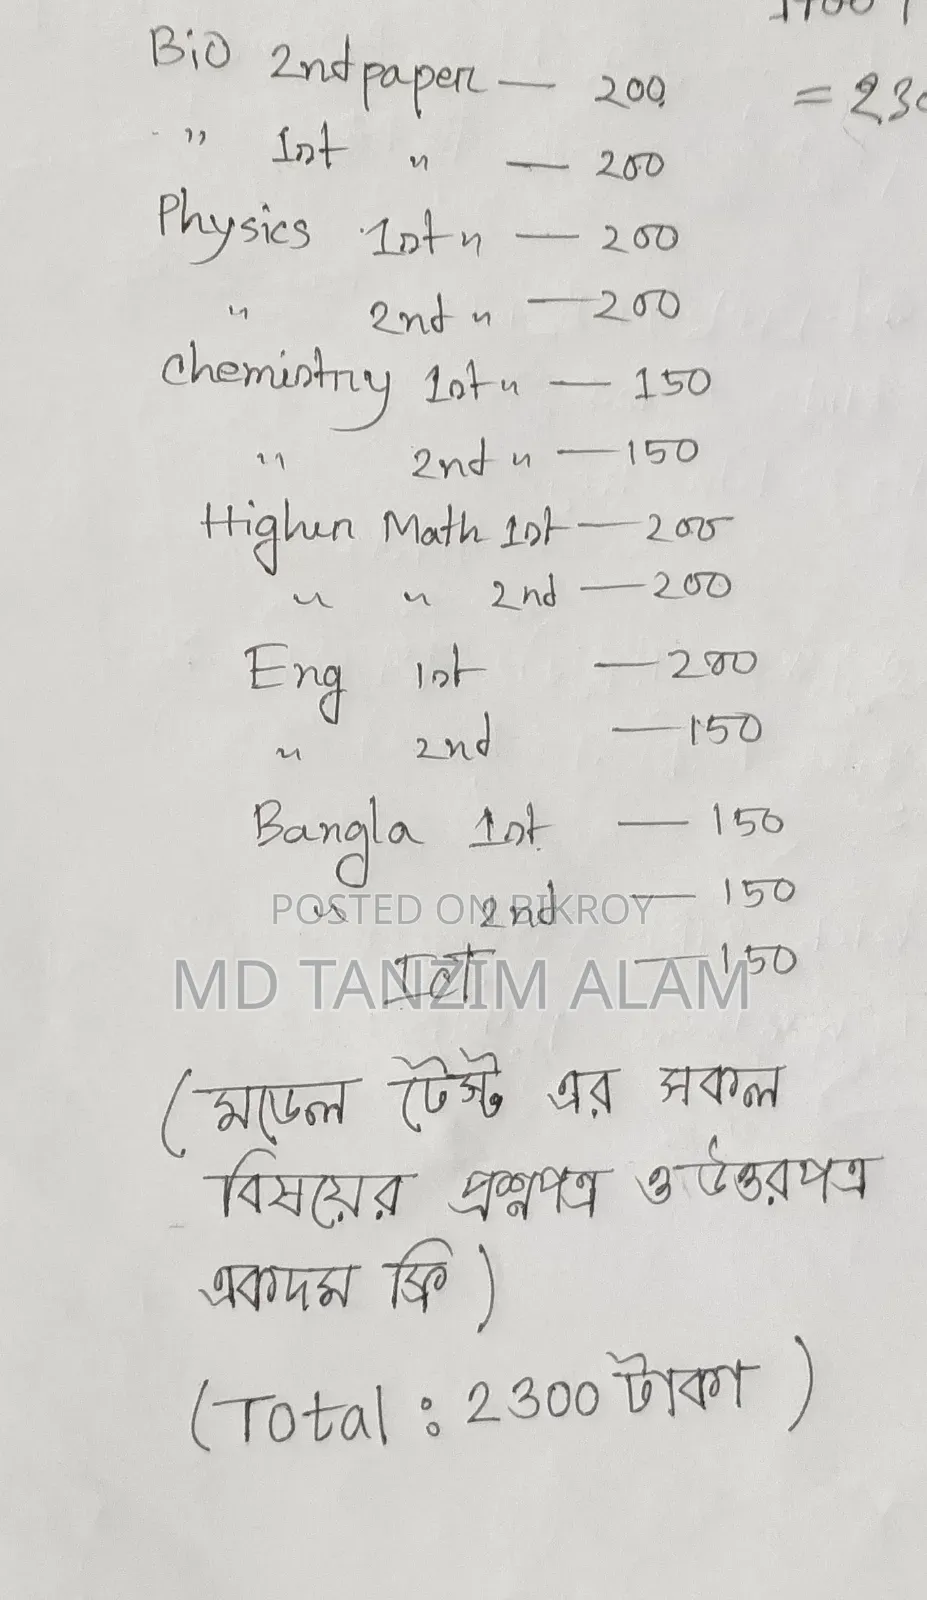 Bio 2nd paper — 200
" 1st " — 200
Physics 1st " — 200
" 2nd " — 200
Chemistry 1st " — 150
" 2nd " — 150
Higher Math 1st — 200
" " 2nd — 200
Eng 1st — 200
" 2nd — 150
Bangla 1st — 150
" 2nd — 150
POSTED ON BIKROY
ICT — 150
MD TANZIM ALAM
(মডেল টেস্ট এর সকল
বিষয়ের প্রশ্নপত্র ও উত্তরপত্র
একদম ফ্রি)
(Total : 2300 টাকা)